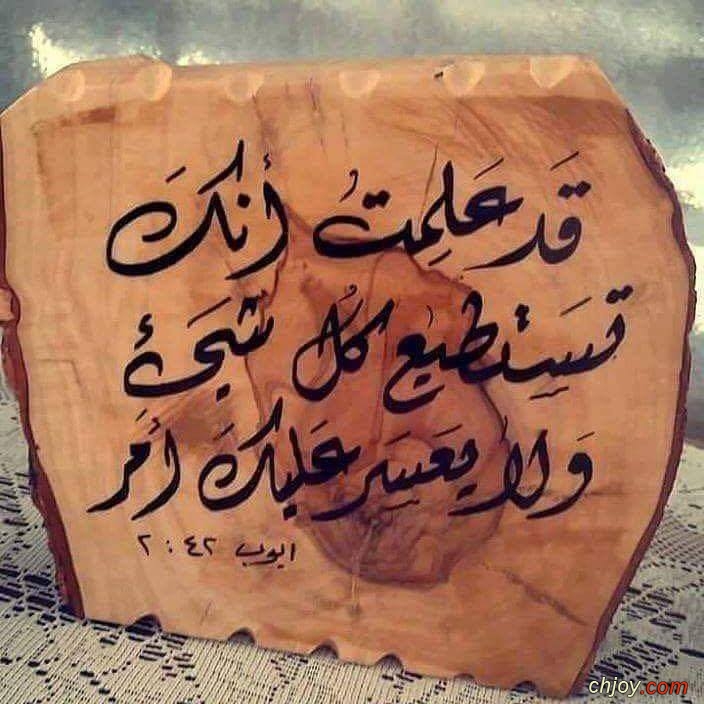 قَد عَلِمتُ أنكَ
تَستِطيع كلُ شيَئ
وَلا يَعسَر عَليكَ أمَر
ايوب ٤٢ : ٢
chjoy.com